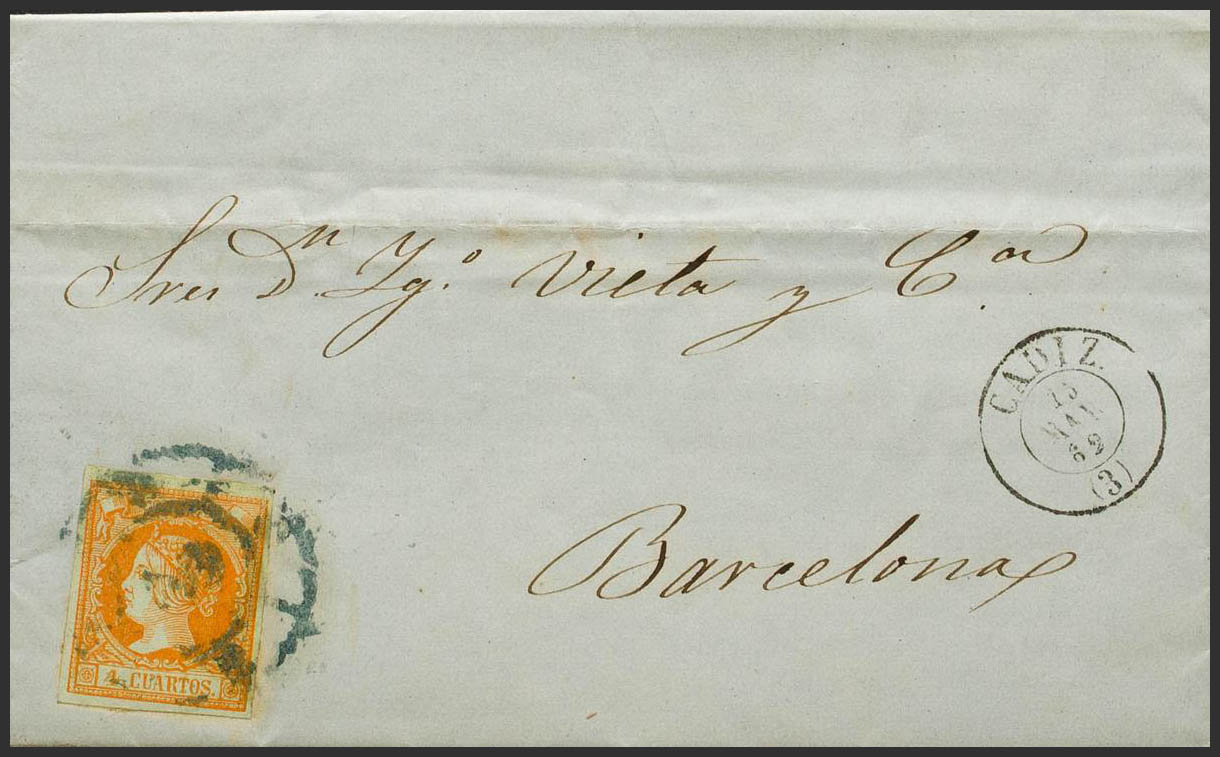 Sres Dn. Ygo. Vieta y Ca.
CADIZ.
MAY
62
(3)
Barcelona
4 CUARTOS.